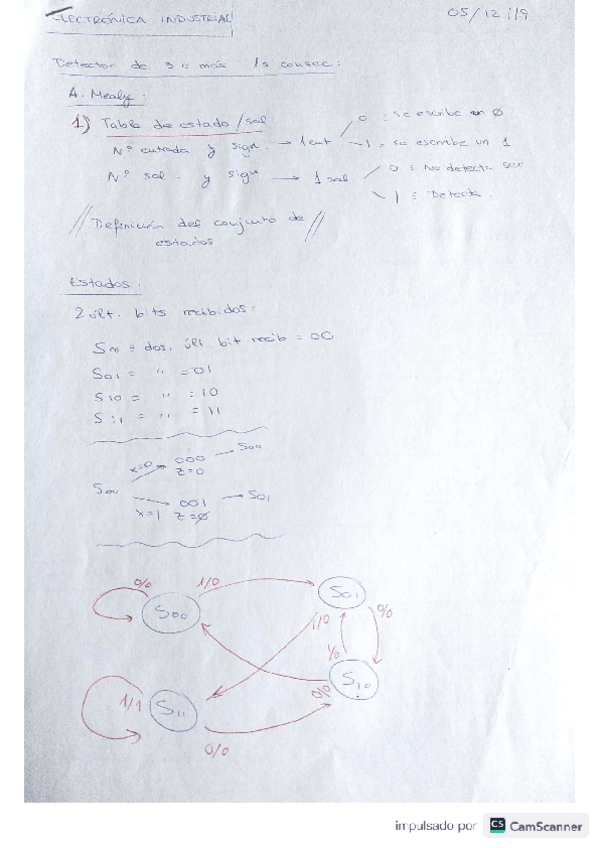 ELECTRÓNICA INDUSTRIAL
05/12/19
Detector de 3 o más 1s consec:
A. Mealy:
1) Tabla de estado/sal.
Nº entrada y sign. → 1 ent
0 : se escribe un 0
1 = se escribe un 1
Nº sal. y sign → 1 sal
0 : No detecta sec
1 : Detecta.
// Definición del conjunto de estados //
Estados:
2 últ. bits recibidos.
S00 = dos. últ. bit recib = 00
S01 = " = 01
S10 = " = 10
S11 = " = 11
S00
x=0 → 000 → S00
z=0
→ 001 → S01
x=1 z=0
0/0
1/0
S00
S01
1/0
0/0
1/0
S10
0/0
1/1
S11
0/0
impulsado por CS CamScanner